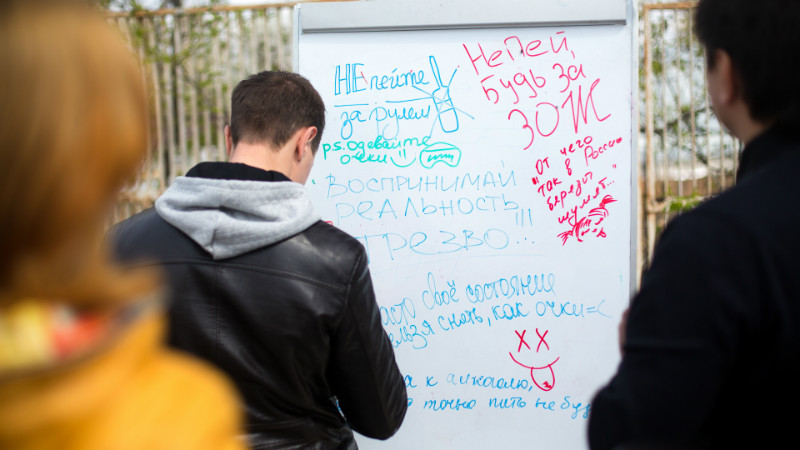 НЕ пейте
за рулём
p.s. одевайте
очки
Не Пей,
Будь за
ЗОЖ
"От чего
так в России
берёзы
шумят..."
ВОСПРИНИМАЙ
РЕАЛЬНОСТЬ
ТРЕЗВО...!!!
своё состояние
нельзя снять, как очки =(
к алкоголю,
точно пить не буду